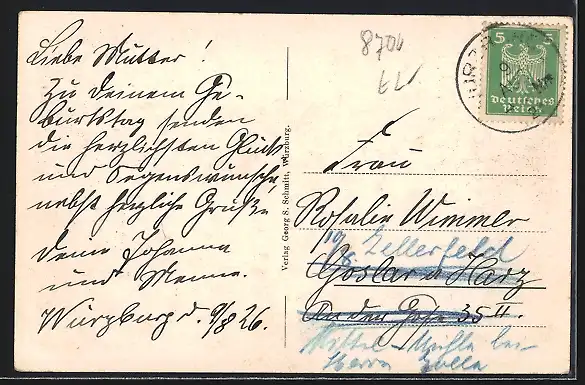 Liebe Mutter!
Zu Deinem Ge-
burtstag senden
die herzlichsten Glück
und Segenswünsche,
nebst herzliche Grüße
Deine Johanna
und Menne.
Würzburg d. 9/8 26.
Verlag Georg S. Schmitt, Würzburg.
8700
5 5
Deutsches
Reich
Frau
Rosalie Wimmer
10/8 Zellerfeld
Goslar a Harz
An der Gose 35 II.
Mittel Mühle bei
Herrn